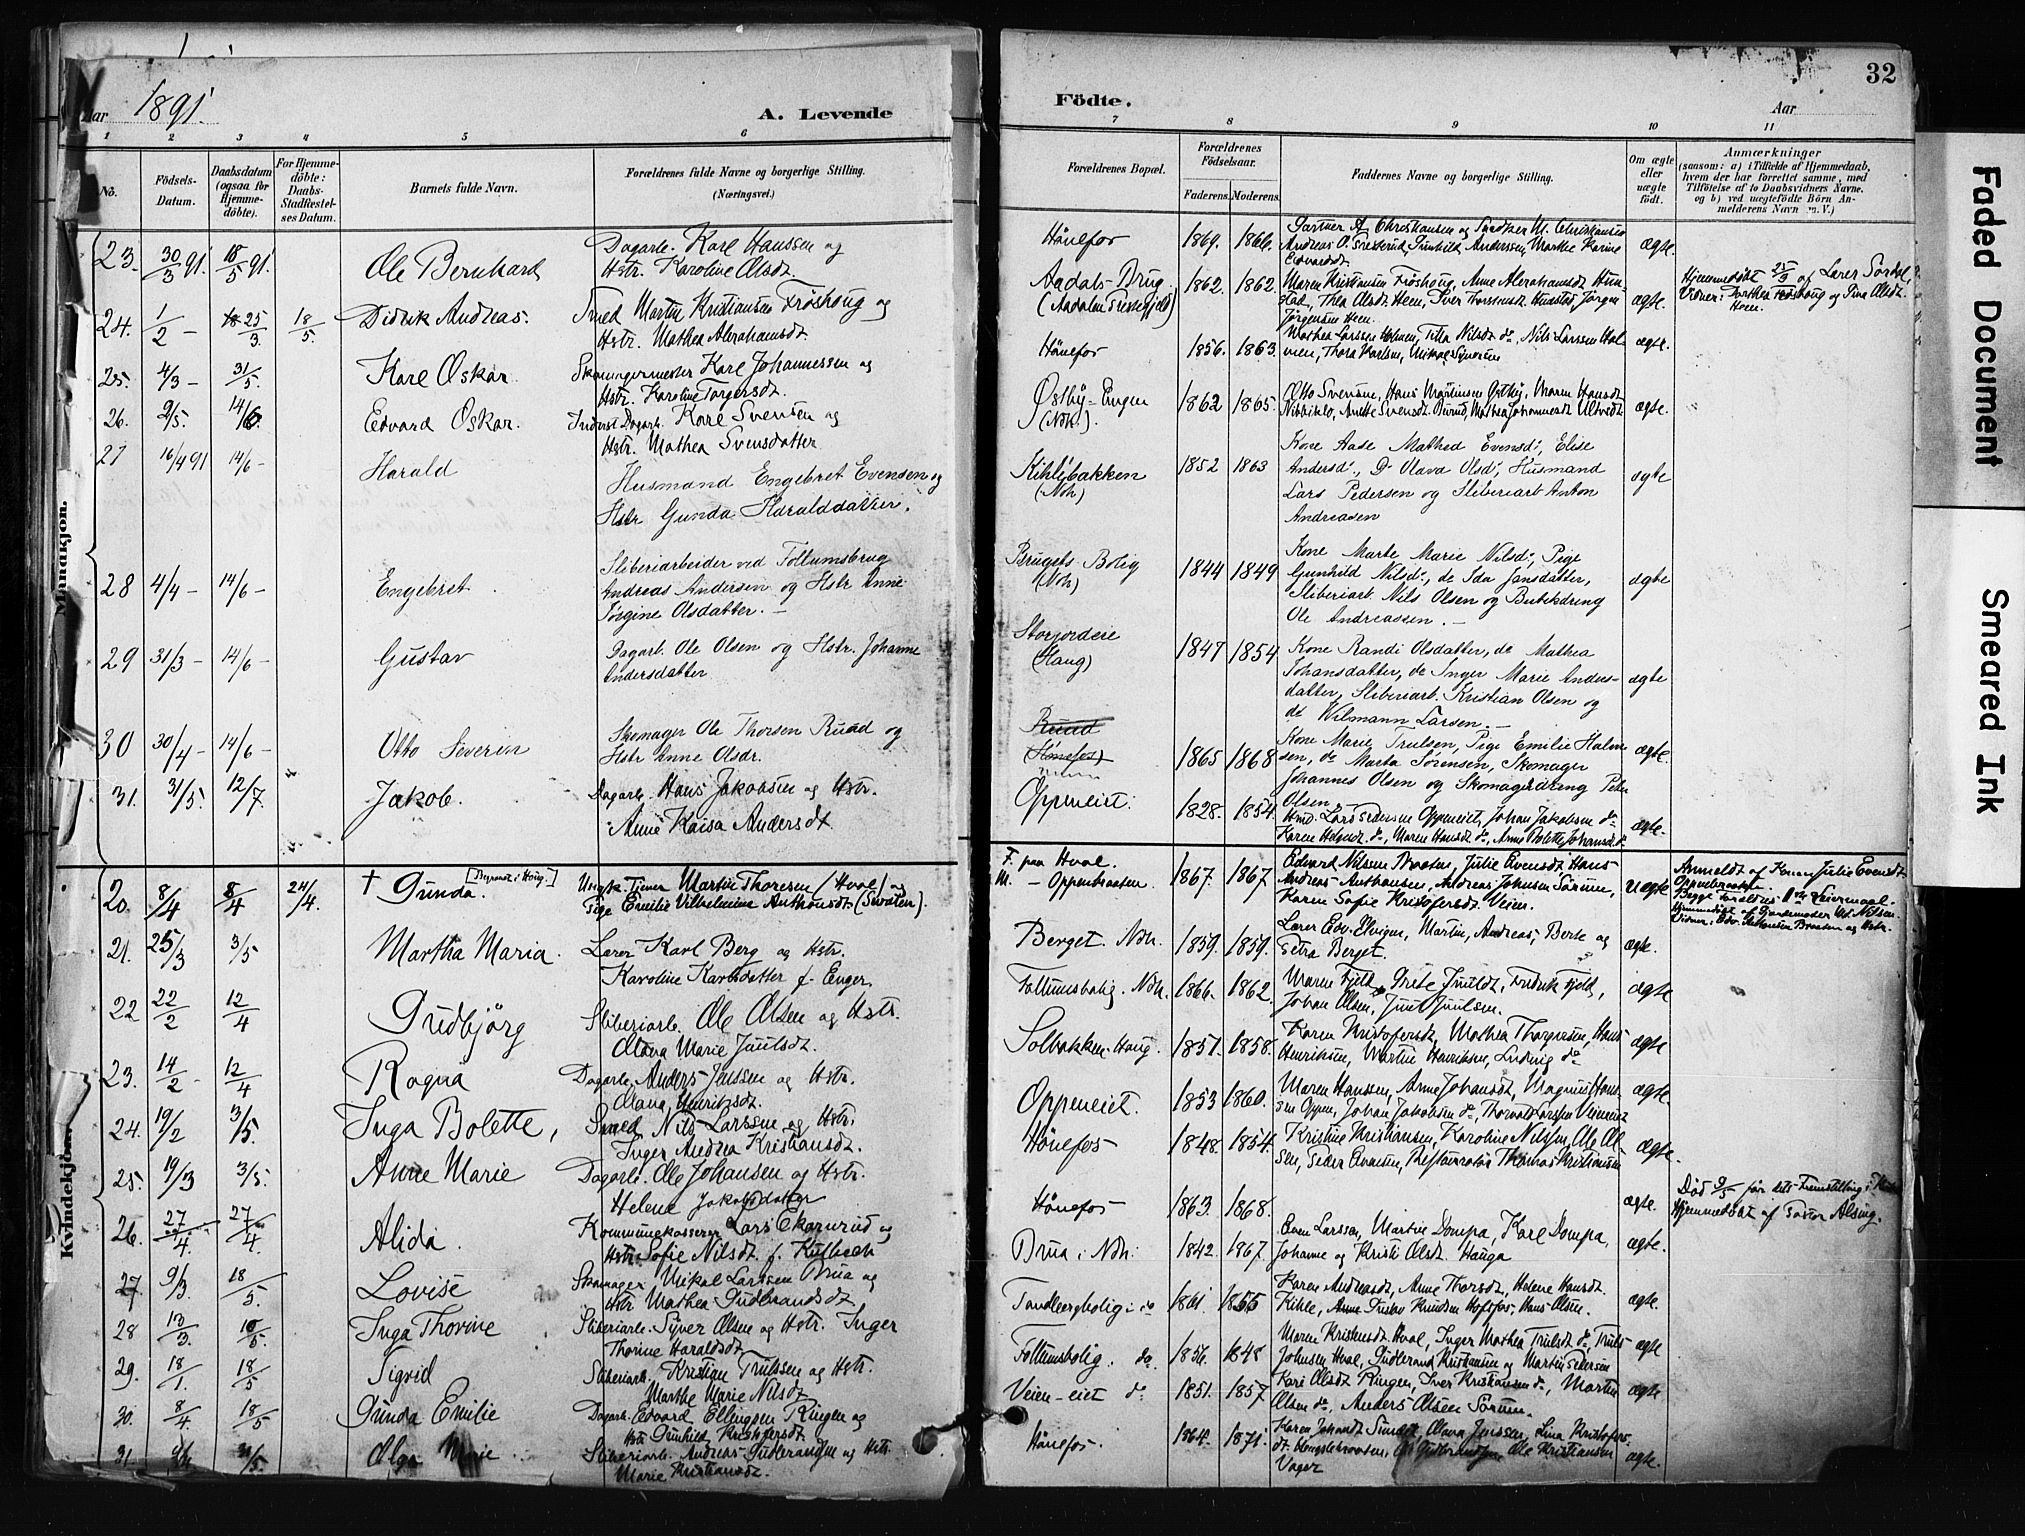 Aar 1891.
A. Levende
Födte.
Aar
32
1 2 3 4 5 6 7 8 9 10 11
No.
Födsels-
Datum.
Daabsdatum
(ogsaa for
Hjemme-
döbte).
For Hjemme-
döbte:
Daabs-
Stadfæstel-
ses Datum.
Barnets fulde Navn.
Forældrenes fulde Navne og borgerlige Stilling.
(Næringsvei.)
Forældrenes Bopæl.
Forældrenes
Födselsaar.
Faderens. Moderens.
Faddernes Navne og borgerlige Stilling.
Om ægte
eller
uægte
födt.
Anmærkninger
(saasom: a) i Tilfælde af Hjemmedaab,
hvem der har forrettet samme, med
Tilföielse af to Daabsvidners Navne,
og b) ved uægtefödte Börn An-
melderens Navn m. V.)
Mandkjøn.
23. 30/3 91. 18/5 91. Ole Bernhard
Dagarb. Karl Hanssen og
Hstr. Karoline Olsdt.
Hönefos 1869. 1866.
Gartner A. Christiansen og
ægte.
24. 1/2 - 25/3 18/5. Didrik Andreas.
Smed Martin Kristiansen Fröshoug og
Hstr. Mathea Abrahamsdt.
Aadals-Brug. 1862. 1862.
Maren Kristiansen Fröshoug, Anne Abrahamsdt
stad, Thea Olsdt. Heen, Iver
Jörgensen Heen.
ægte.
Hjemmedöbt 25/3 af Lærer
Vidner: Dorthea Fröshoug og Tina Olsdt.
Heen.
25. 4/3 - 31/5. Karl Oskar.
Karl Johannessen og
Hstr. Karoline Torgersdt.
Hönefos 1856. 1863.
Mathea Larssen Holmen, Nils Larssen Hol-
men, Thora Karlsen,
ægte.
26. 2/5. 14/6. Edvard Oskar.
Inderst Dagarb. Karl Svensen og
Hstr. Mathea Svensdatter
Östby-Engen
(Ndh.).
1862 1865.
Otto Svensen, Hans Martinsen Östby, Maren Hansdt.
Anette Svensdt. Mathea Johannesdt
ægte.
27 16/4 91 14/6 - Harald
Husmand Engebret Evensen og
Hstr Gunda Haralddatter.
Kihlebakken
(Ndh)
1852 1863
Kone Aase Mathea Evensd., Elise
Andersd., Do Olava Olsd., Husmand
Lars Pedersen og Sliberiarb. Anton
Andreasen
ægte
28 4/4 - 14/6 - Engebret
Sliberiarbeider ved Follumsbrug
Andreas Andersen og Hstr Anne
Jörgine Olsdatter. -
Brugets Bolig
(Ndh)
1844 1849
Kone Marte Marie Nilsd., Pige
Gunhild Nilsd., de Ida Jansdatter,
Sliberiarb. Nils Olsen og Butikdreng
Ole Andreassen. -
ægte
29 31/3 - 14/6 - Gustav
Dagarb. Ole Olsen og Hstr. Johanne
Andersdatter
Storjordeie
(Haug)
1847 1854
Kone Randi Olsdatter, de Mathea
Johansdatter, de Inger Marie Anders-
datter, Sliberiarb. Kristian Olsen og
de Wilmann Larsen. -
ægte
30 30/4 - 14/6 - Otto Severin
Skomager Ole Thorsen Ruud og
Hstr Anne Olsdr.
Ruud
(Hönefos)
1865 1868
Kone Marie Trulsen, Pige Emilie Halvor-
sen, de Marta Sörensen, Skomager
Johannes Olsen og Skomagerdreng Peter
Olsen.
ægte.
31. 31/5. 12/7. Jakob.
Dagarb. Hans Jakobsen og Hstr.
Anne Kaisa Andersdt.
Oppeneiet. 1828. 1854.
Hmd. Lars Pedersen Oppeneiet, Johan Jakobsen do
Karen Hansdt do, Maren Hansdt do, Anne Bolette Johansdt. do
ægte.
Kvindekjøn.
20. 8/4 8/4 24/4. † Gunda.
Ungk. Tjener Martin Thoresen (Hval) og
Pige Emilie Vilhelmine Anthonsdt.
F. paa Hval.
M. - Oppenbraaten.
1867. 1867
Edvard Nilsen Braaten, Julie Evensdt, Hans
Andreas Anthonsen, Andreas Johnsen Sörum,
Karen Sofie Kristofersdt. Veien.
Uægte
Anmeldt af Konen Julie Evensdt
Oppenbraaten.
Begge Forældres 1ste Leiermaal.
Hjemmedöbt af Gjordemoder
21. 25/3 3/5 Martha Maria.
Lærer Karl Berg og Hstr.
Karoline Karlsdatter f. Enger
Berget. Ndh. 1859. 1859.
Lærer Edv. Elvigen, Martin, Andreas, Berte og
Petra Berget.
ægte.
22 22/2 12/4 Gudbjörg
Sliberiarb. Ole Olsen og Hstr.
Olava Marie Juulsdt.
Follumsbolig. Ndh. 1866. 1862.
Maren Fjeld, Grete Juulsdt, Fredrik Fjeld,
Johan Olsen, Juul Juulsen.
ægte
23. 14/2 - 12/4 Ragna
Dagarb. Anders Jenssen og Hstr.
Olava Henriksdt.
Solbakken. Haug. 1857. 1858.
Karen Kristofersdt, Mathea Thorgersen, Hans
Henriksen, Martin Henriksen, Ludvig do
ægte
24. 19/2 3/5. Inga Bolette,
Smed Nils Larssen og Hstr.
Inger Andrea Kristiansdt.
Oppeneiet. 1853 1860.
Maren Hanssen, Anne Johansdt, Magnus Hans-
sen Oppen, Johan Jakobsen do, Thorvald Larssen
ægte.
25. 19/3 3/5. Anne Marie
Dagarb. Ole Johansen og Hstr.
Helene Jakobsdatter
Hönefos 1848. 1854.
Kristine Kristiansen, Karoline Nilssen, Ole Ol-
sen, Peder Evensen, Restauratör Thomas Kristiansen
ægte.
26. 27/4 27/4. Alida.
Kommunekasserer Lars Ekornrud og
Hstr. Sofie Nilsdt. f.
Hönefos 1863. 1868.
ægte.
Död 9/5 för dets Fremstilling i Kirken
Hjemmedöbt af Pastor Alsing.
27. 9/3. 18/5. Lovise
Skomager Mikal Larssen Brua og
Hstr Mathea Gudbrandsdt.
Brua i Ndh. 1842. 1867.
Even Larssen, Martin Dompa, Karl Dompa,
Johanne og Kristi Olsdt. Hauga
ægte.
28 13/3. 18/5. Inga Thorine
Sliberiarb. Syver Olsen og Hstr. Inger
Thorine Haraldsdt
1861. 1855
Karen Andreasdt, Anne Thorsdt, Helene Hansdt.
Kihle, Gustav Knudsen Hofsfos, Hans Olsen.
ægte.
29. 18/1. 18/5 Sigrid
Sliberiarb. Kristian Trulssen og Hstr.
Marthe Marie Nilsdt
Follumsbolig. do 1856. 1848
Maren Kristensdt. Hval, Inger Mathea Trulsdt do, Truls
Johnsen Hval, Gudbrand Kristiansen og Martin Pedersen
ægte
30. 8/4 18/5 Gunda Emilie
Dagarb. Edvard Ellingsen Ringen og
Hstr Gunhild Kristofersdt
Veien-eiet do 1851. 1857
Kari Olsdt. Ringen, Iver Kristiansen do, Martin
Olsen do, Anders Olsen Sörum.
ægte
31. 31/5. Olga Marie
Sliberiarb. Andreas Gudbrandsen og Hstr.
Marie Kristiansdt.
Hönefos. 1864. 1871.
Karen Johansdt Sundet, Olava Jenssen, Lina Kristofers-
dt. Ole Kristiansen
Vager
ægte.
Faded Document
Smeared Ink